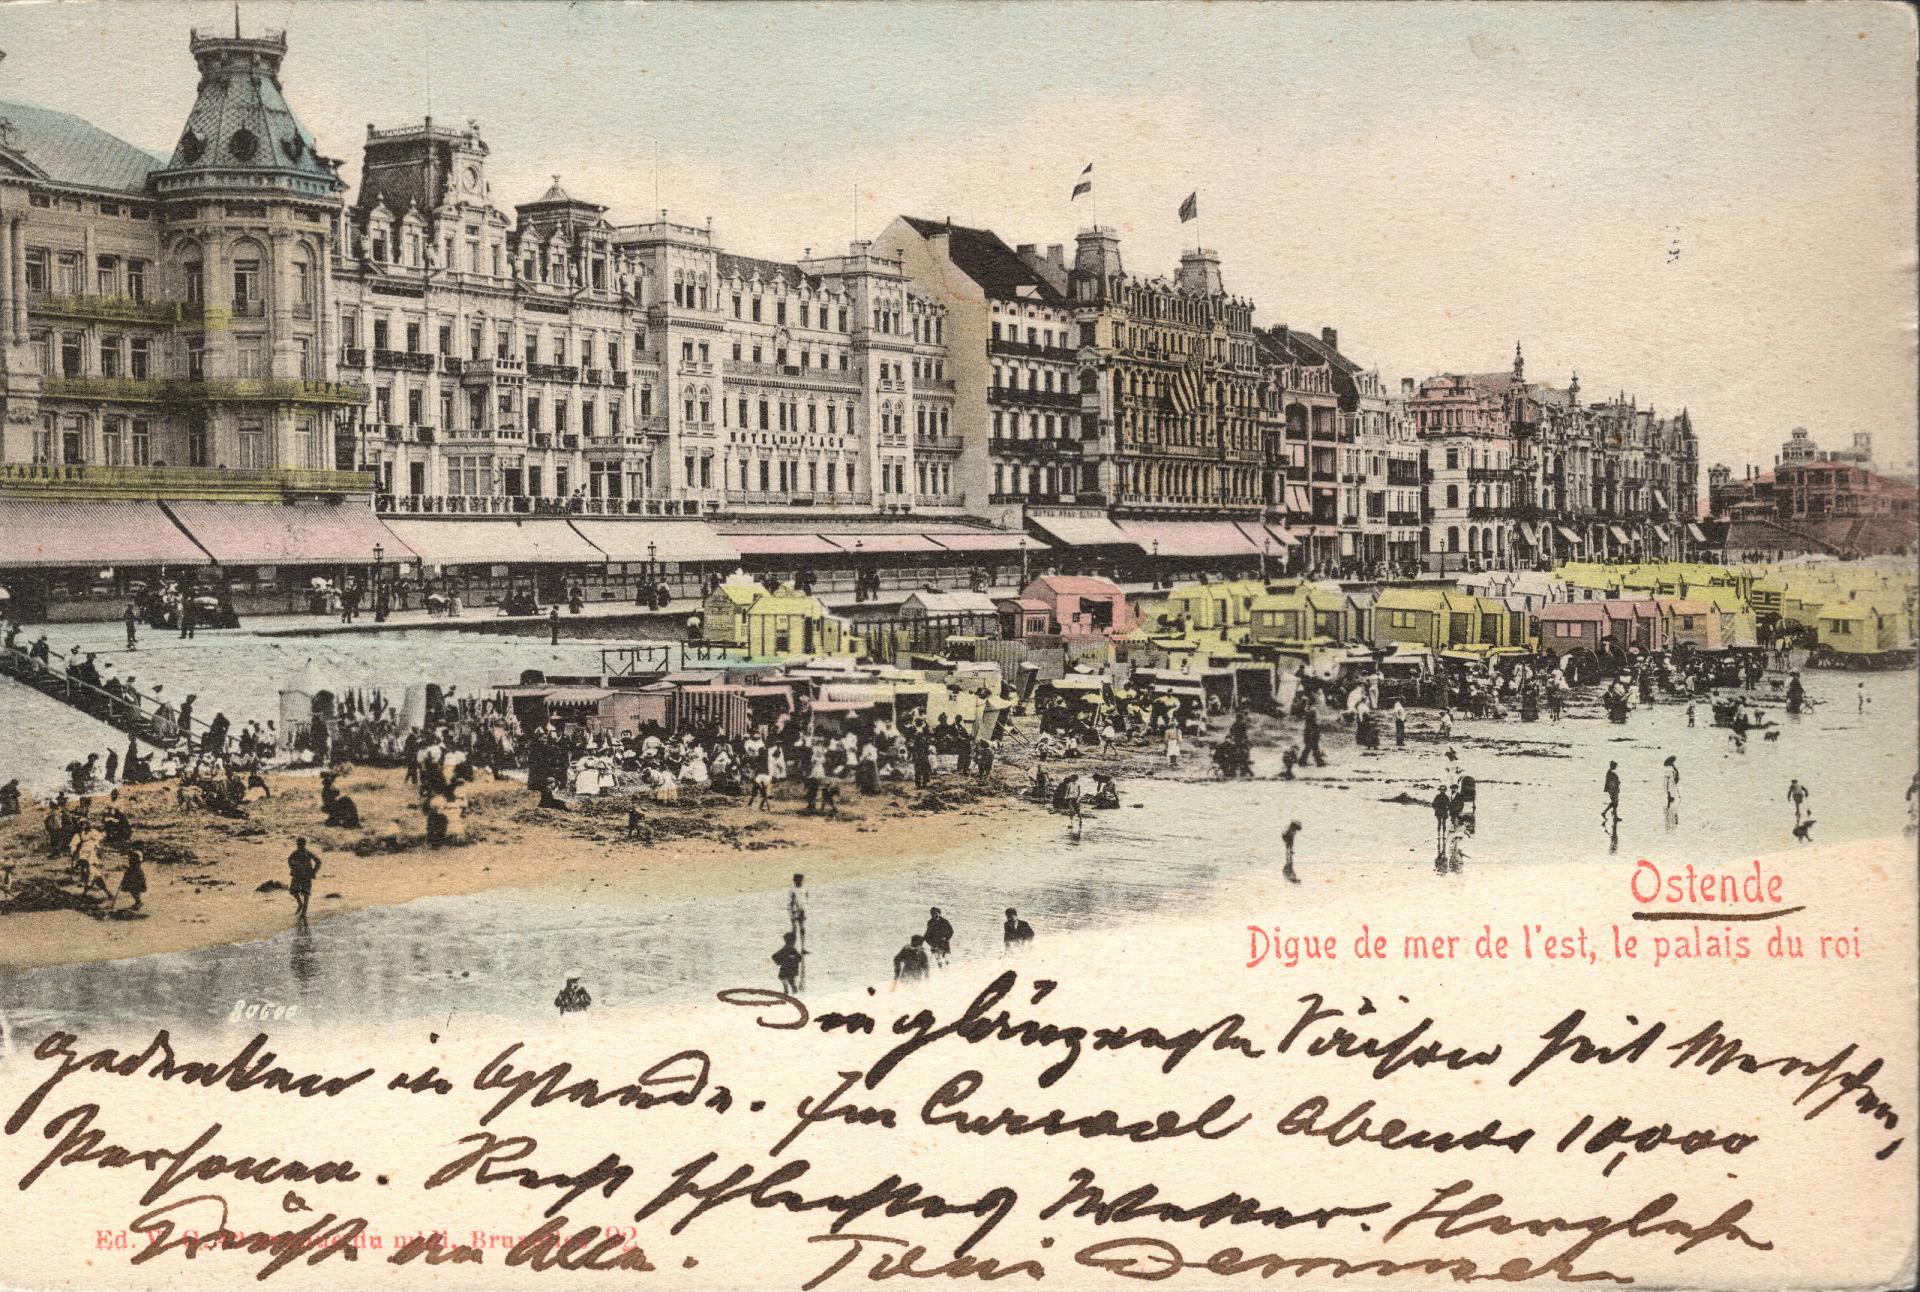 TAURANT
HOTEL DE LA PLAGE
Ostende
Digue de mer de l'est, le palais du roi
80600
Die glänzendste Saison seit Menschen,
gedenken in Ostende. Im Cursaal Abends 10,000
Personen. Recht schlechtes Wetter. Herzliche
Grüße an Alle. Toni Demmer
Ed. V. G. du midi, Bruxelles 92